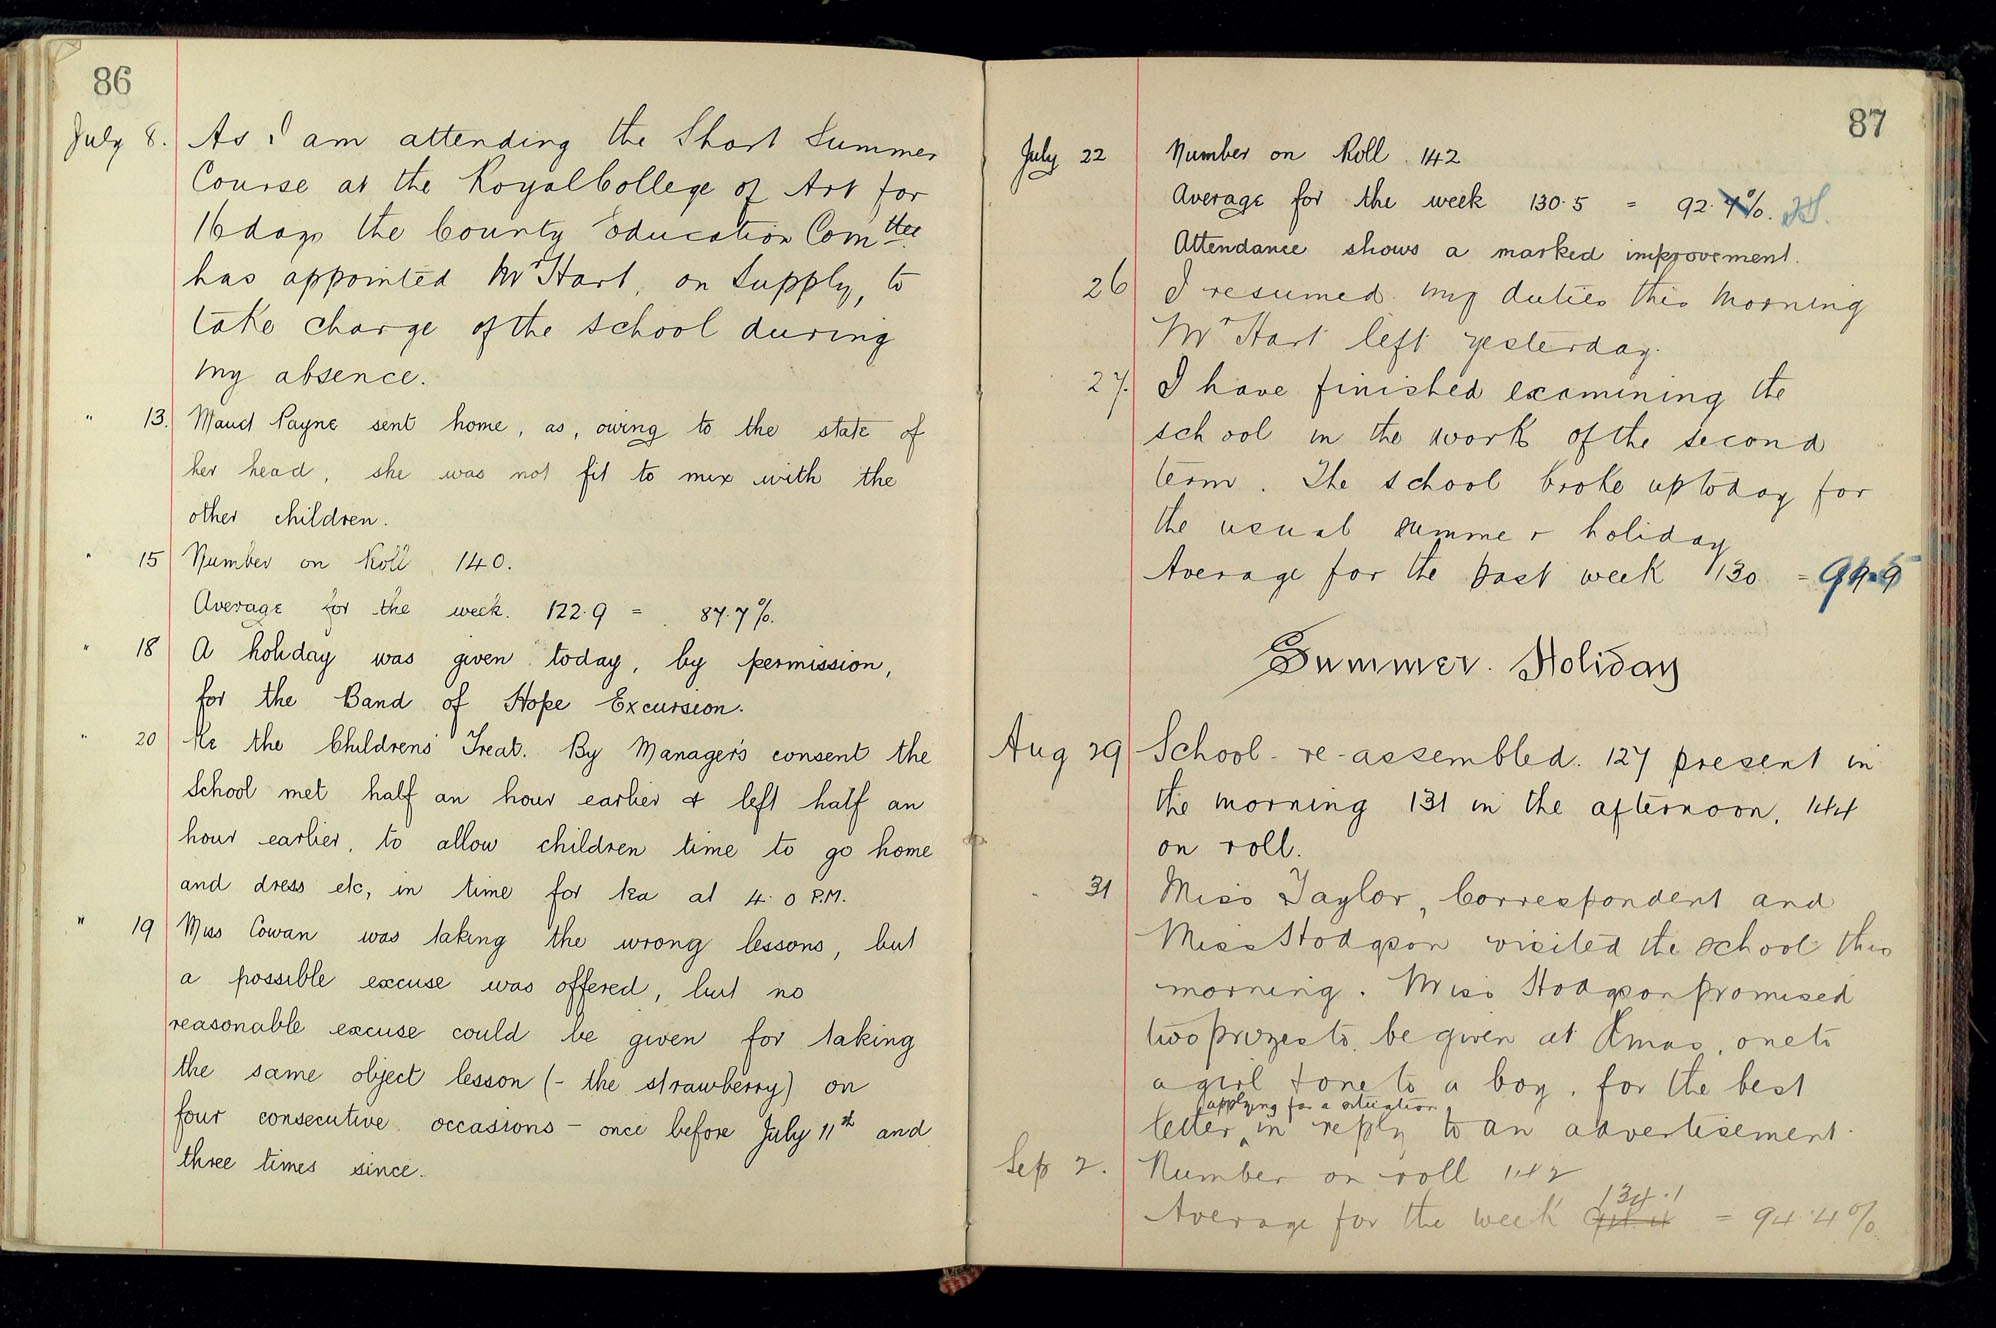 86
July 8. As I am attending the Short Summer
Course at the Royal College of Art for
16 days the County Education Comttee
has appointed Mr Hart, on Supply, to
take charge of the school during
my absence.
" 13. Maud Payne sent home, as, owing to the state of
her head, she was not fit to mix with the
other children.
" 15 Number on Roll 140.
Average for the week. 122.9 = 87.7%.
" 18 A holiday was given today, by permission,
for the Band of Hope Excursion.
" 20 Re the Childrens' Treat. By Manager's consent the
School met half an hour earlier & left half an
hour earlier, to allow children time to go home
and dress etc, in time for tea at 4.0 P.M.
" 19 Miss Cowan was taking the wrong lessons, but
a possible excuse was offered, but no
reasonable excuse could be given for taking
the same object lesson (- the strawberry) on
four consecutive occasions - once before July 11th and
three times since.
87
July 22 Number on Roll 142
Average for the week 130.5 = 92.%.
Attendance shows a marked improvement.
26 I resumed my duties this morning
Mr Hart left yesterday.
27. I have finished examining the
school in the work of the second
term. The school broke up today for
the usual summer holiday
Average for the past week 130 =
Summer Holiday
Aug 29 School re-assembled. 127 present in
the morning 131 in the afternoon. 144
on roll.
31 Miss Taylor, Correspondent and
Miss Hodgson visited the school this
morning. Miss Hodgson promised
two prizes to be given at Xmas, one to
a girl & one to a boy, for the best
applying for a situation
letter in reply to an advertisement.
Sep 2. Number on roll 142
134.1
Average for the week = 94.4%